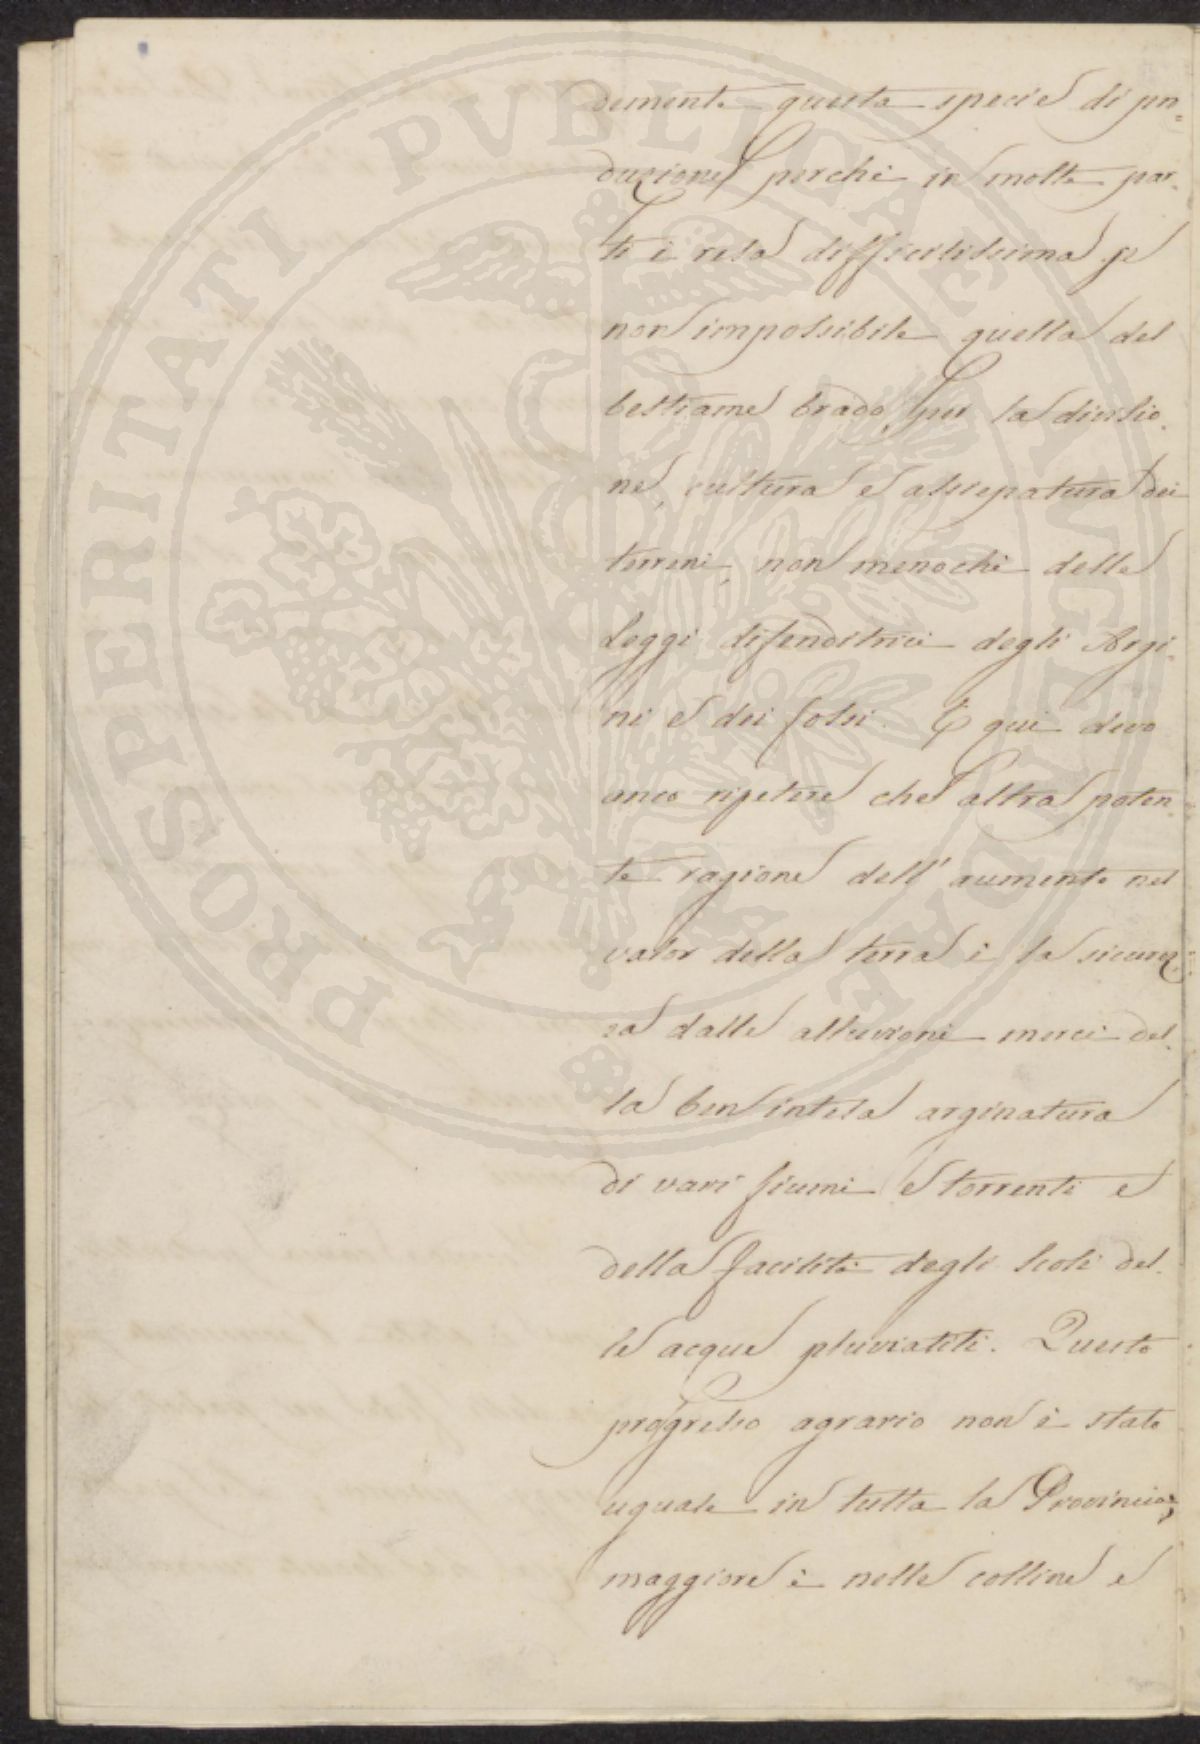 demente questa specie di pro=
duzione perchè in molte par-
ti è resa difficilissima se
non impossibile quella del
bestiame brado, per la divisio-
ne, cultura e assiepatura dei
terreni, non menochè delle
leggi difenditrici degli Argi-
ni e dei fossi. E qui devo
anco ripetere che altra poten-
te ragione dell'aumento nel
valor della terra è la sicurez-
za dalle alluvioni mercè del-
la ben intesa arginatura
di vari fiumi e torrenti e
della facilità degli scoli del-
le acque pluviatili. Questo
progresso agrario non è stato
uguale in tutta la Provincia;
maggiore è nelle colline e
PROSPERITATI PVBLICAE AVGENDAE